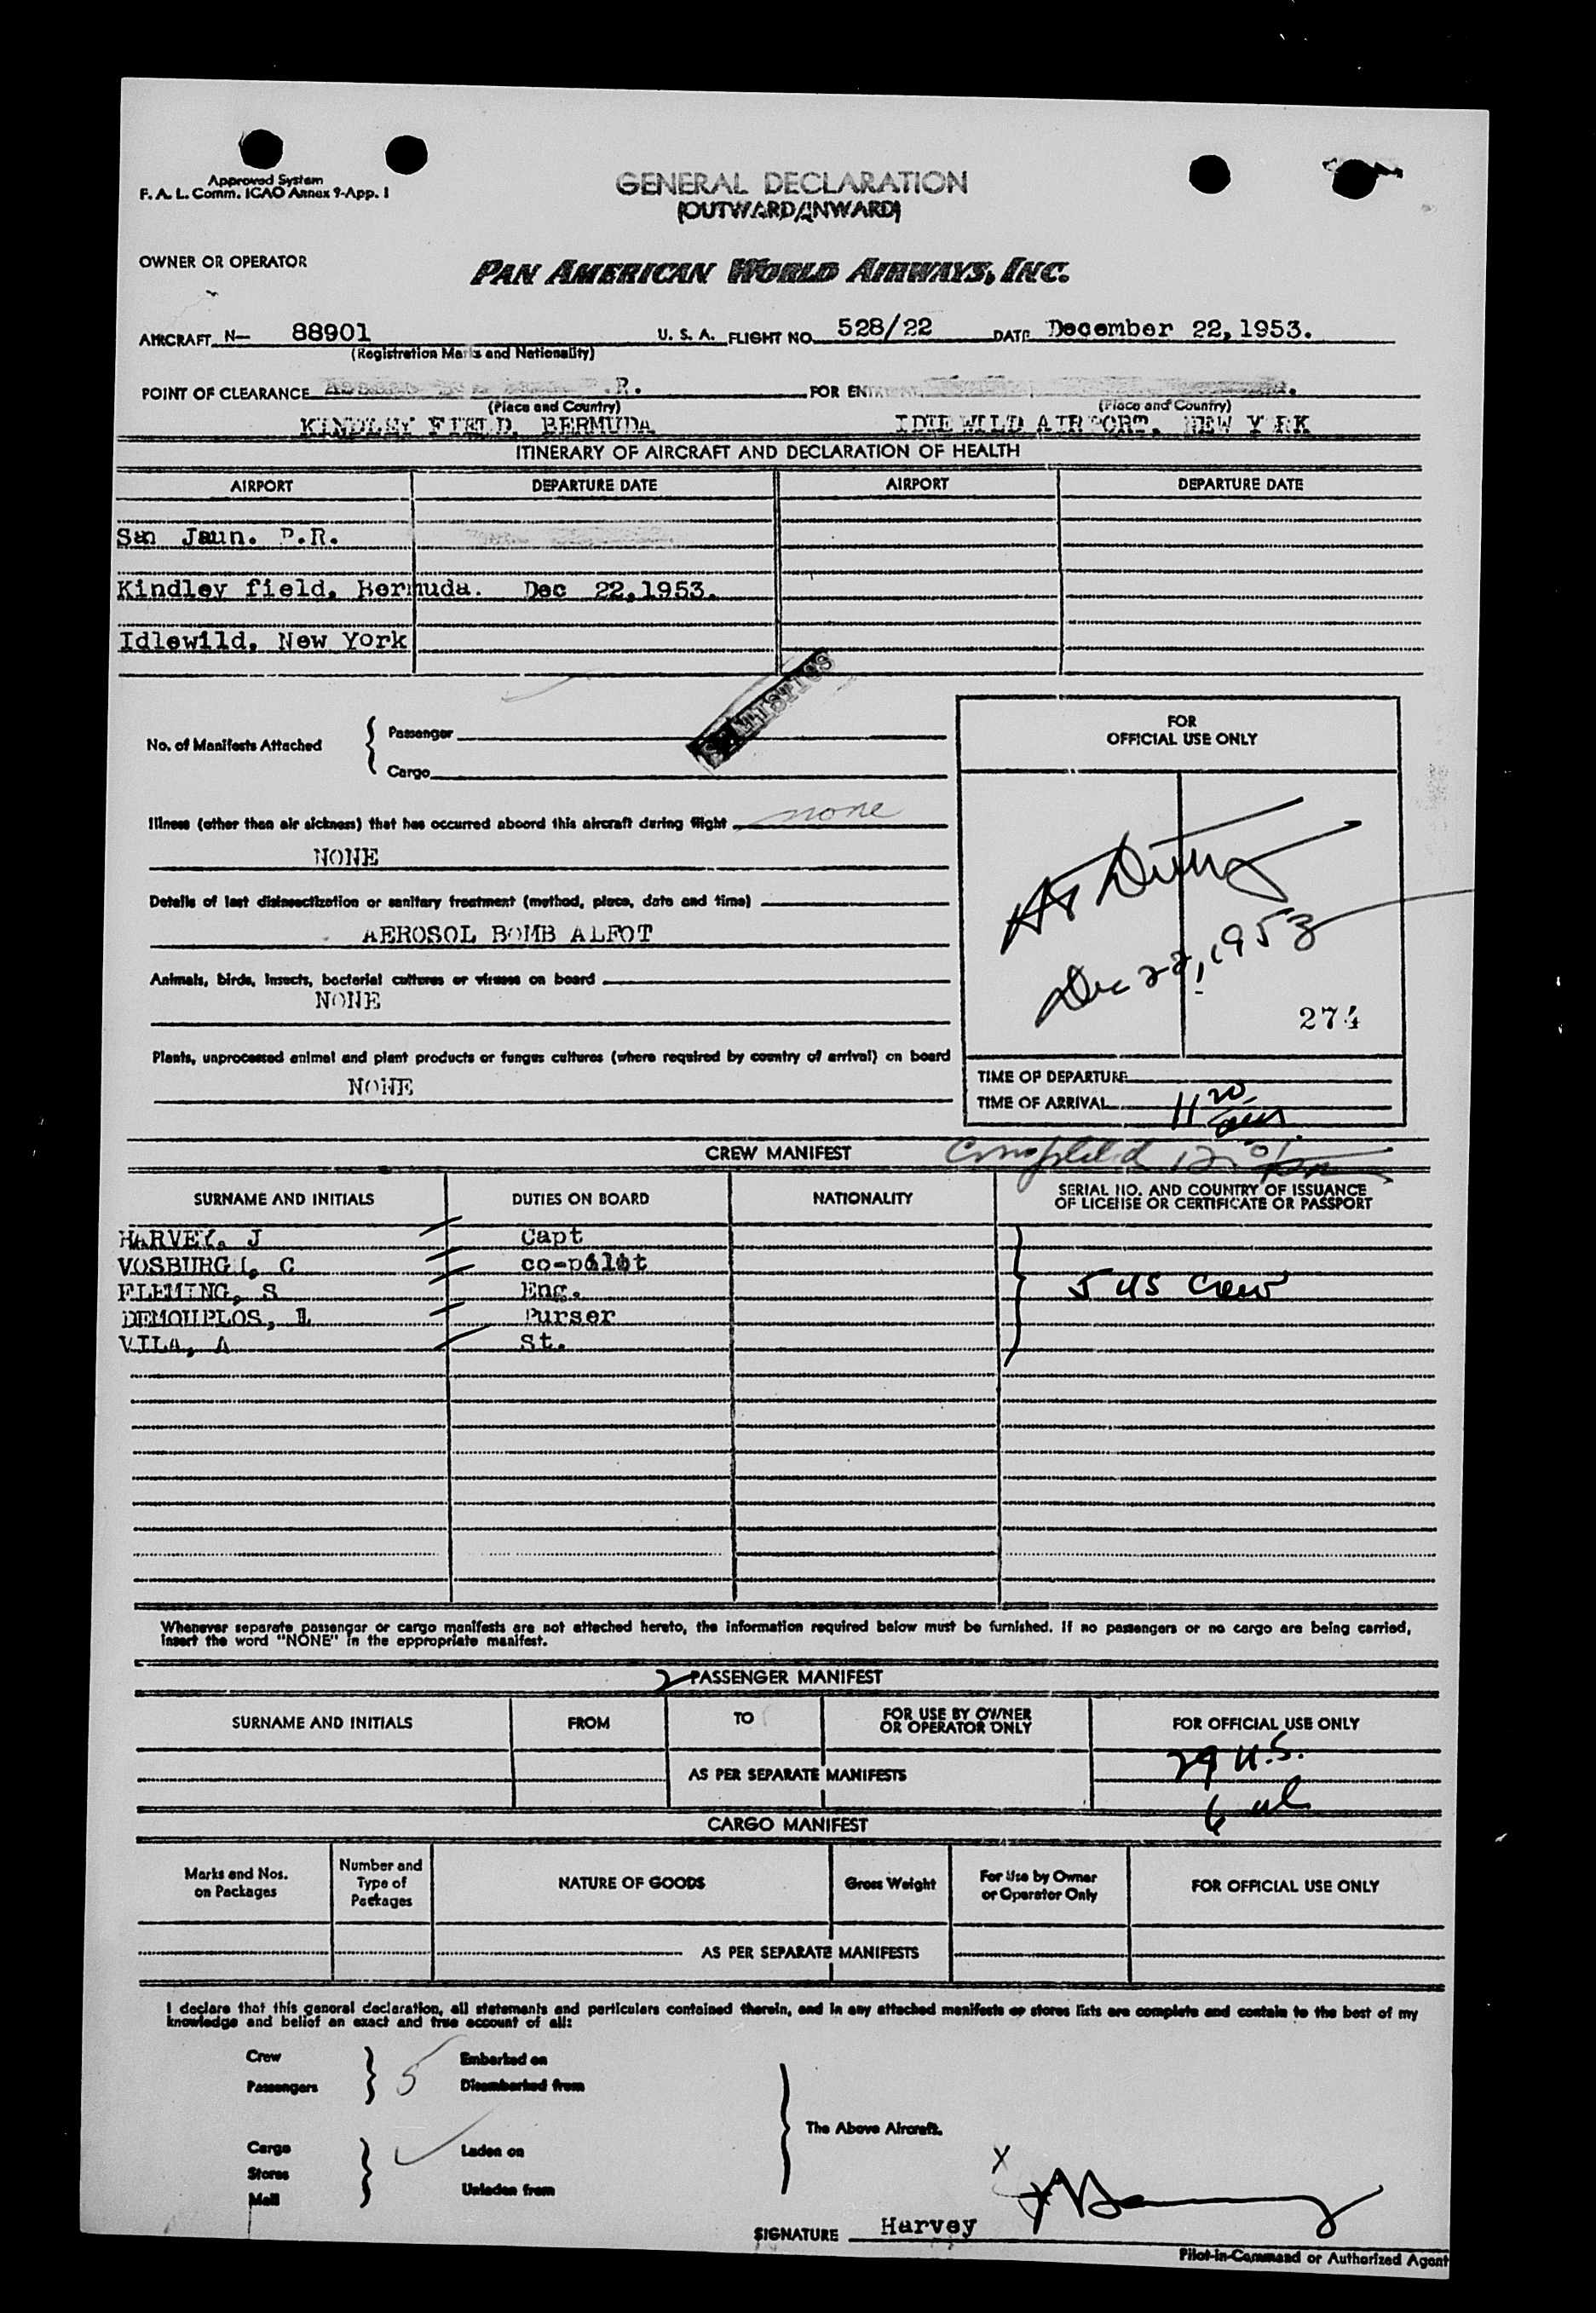 Approved System
F. A. L. Comm. ICAO Annex 9-App. 1
GENERAL DECLARATION
(OUTWARD/INWARD)
OWNER OR OPERATOR
PAN AMERICAN WORLD AIRWAYS, INC.
AIRCRAFT N— 88901 U. S. A. FLIGHT NO. 528/22 DATE December 22,1953.
(Registration Marks and Nationality)
POINT OF CLEARANCE P.R. FOR ENTRY
(Place and Country) (Place and Country)
KINDLEY FIELD, BERMUDA IDLEWILD AIRPORT, NEW YORK
ITINERARY OF AIRCRAFT AND DECLARATION OF HEALTH
AIRPORT DEPARTURE DATE AIRPORT DEPARTURE DATE
San Jaun. P.R.
Kindley field, Bermuda. Dec 22,1953.
Idlewild, New York
STATISTICS
No. of Manifests Attached
Passenger
Cargo
FOR
OFFICIAL USE ONLY
Illness (other than air sickness) that has occurred aboard this aircraft during flight none
NONE
Details of last disinsectization or sanitary treatment (method, place, date and time)
AEROSOL BOMB ALFOT
Animals, birds, insects, bacterial cultures or viruses on board
NONE
Dec 22, 1953
274
Plants, unprocessed animal and plant products or fungus cultures (where required by country of arrival) on board
NONE
TIME OF DEPARTURE
TIME OF ARRIVAL 11 20
CREW MANIFEST Completed
SURNAME AND INITIALS DUTIES ON BOARD NATIONALITY SERIAL NO. AND COUNTRY OF ISSUANCE
OF LICENSE OR CERTIFICATE OR PASSPORT
HARVEY, J Capt
VOSBURGH, C co-pilot
FLEMING, S Eng. 5 US Crew
DEMOUPLOS, L Purser
VILA, A St.
Whenever separate passenger or cargo manifests are not attached hereto, the information required below must be furnished. If no passengers or no cargo are being carried,
insert the word "NONE" in the appropriate manifest.
2 PASSENGER MANIFEST
SURNAME AND INITIALS FROM TO FOR USE BY OWNER
OR OPERATOR ONLY FOR OFFICIAL USE ONLY
29 U.S.
AS PER SEPARATE MANIFESTS
6 al
CARGO MANIFEST
Marks and Nos.
on Packages
Number and
Type of
Packages
NATURE OF GOODS
Gross Weight
For Use by Owner
or Operator Only
FOR OFFICIAL USE ONLY
AS PER SEPARATE MANIFESTS
I declare that this general declaration, all statements and particulars contained therein, and in any attached manifests or stores lists are complete and contain to the best of my
knowledge and belief an exact and true account of all:
Crew 5 Embarked on
Passengers Disembarked from
The Above Aircraft.
Cargo Laden on
Stores
Mail Unladen from
X
SIGNATURE Harvey
Pilot-in-Command or Authorized Agent